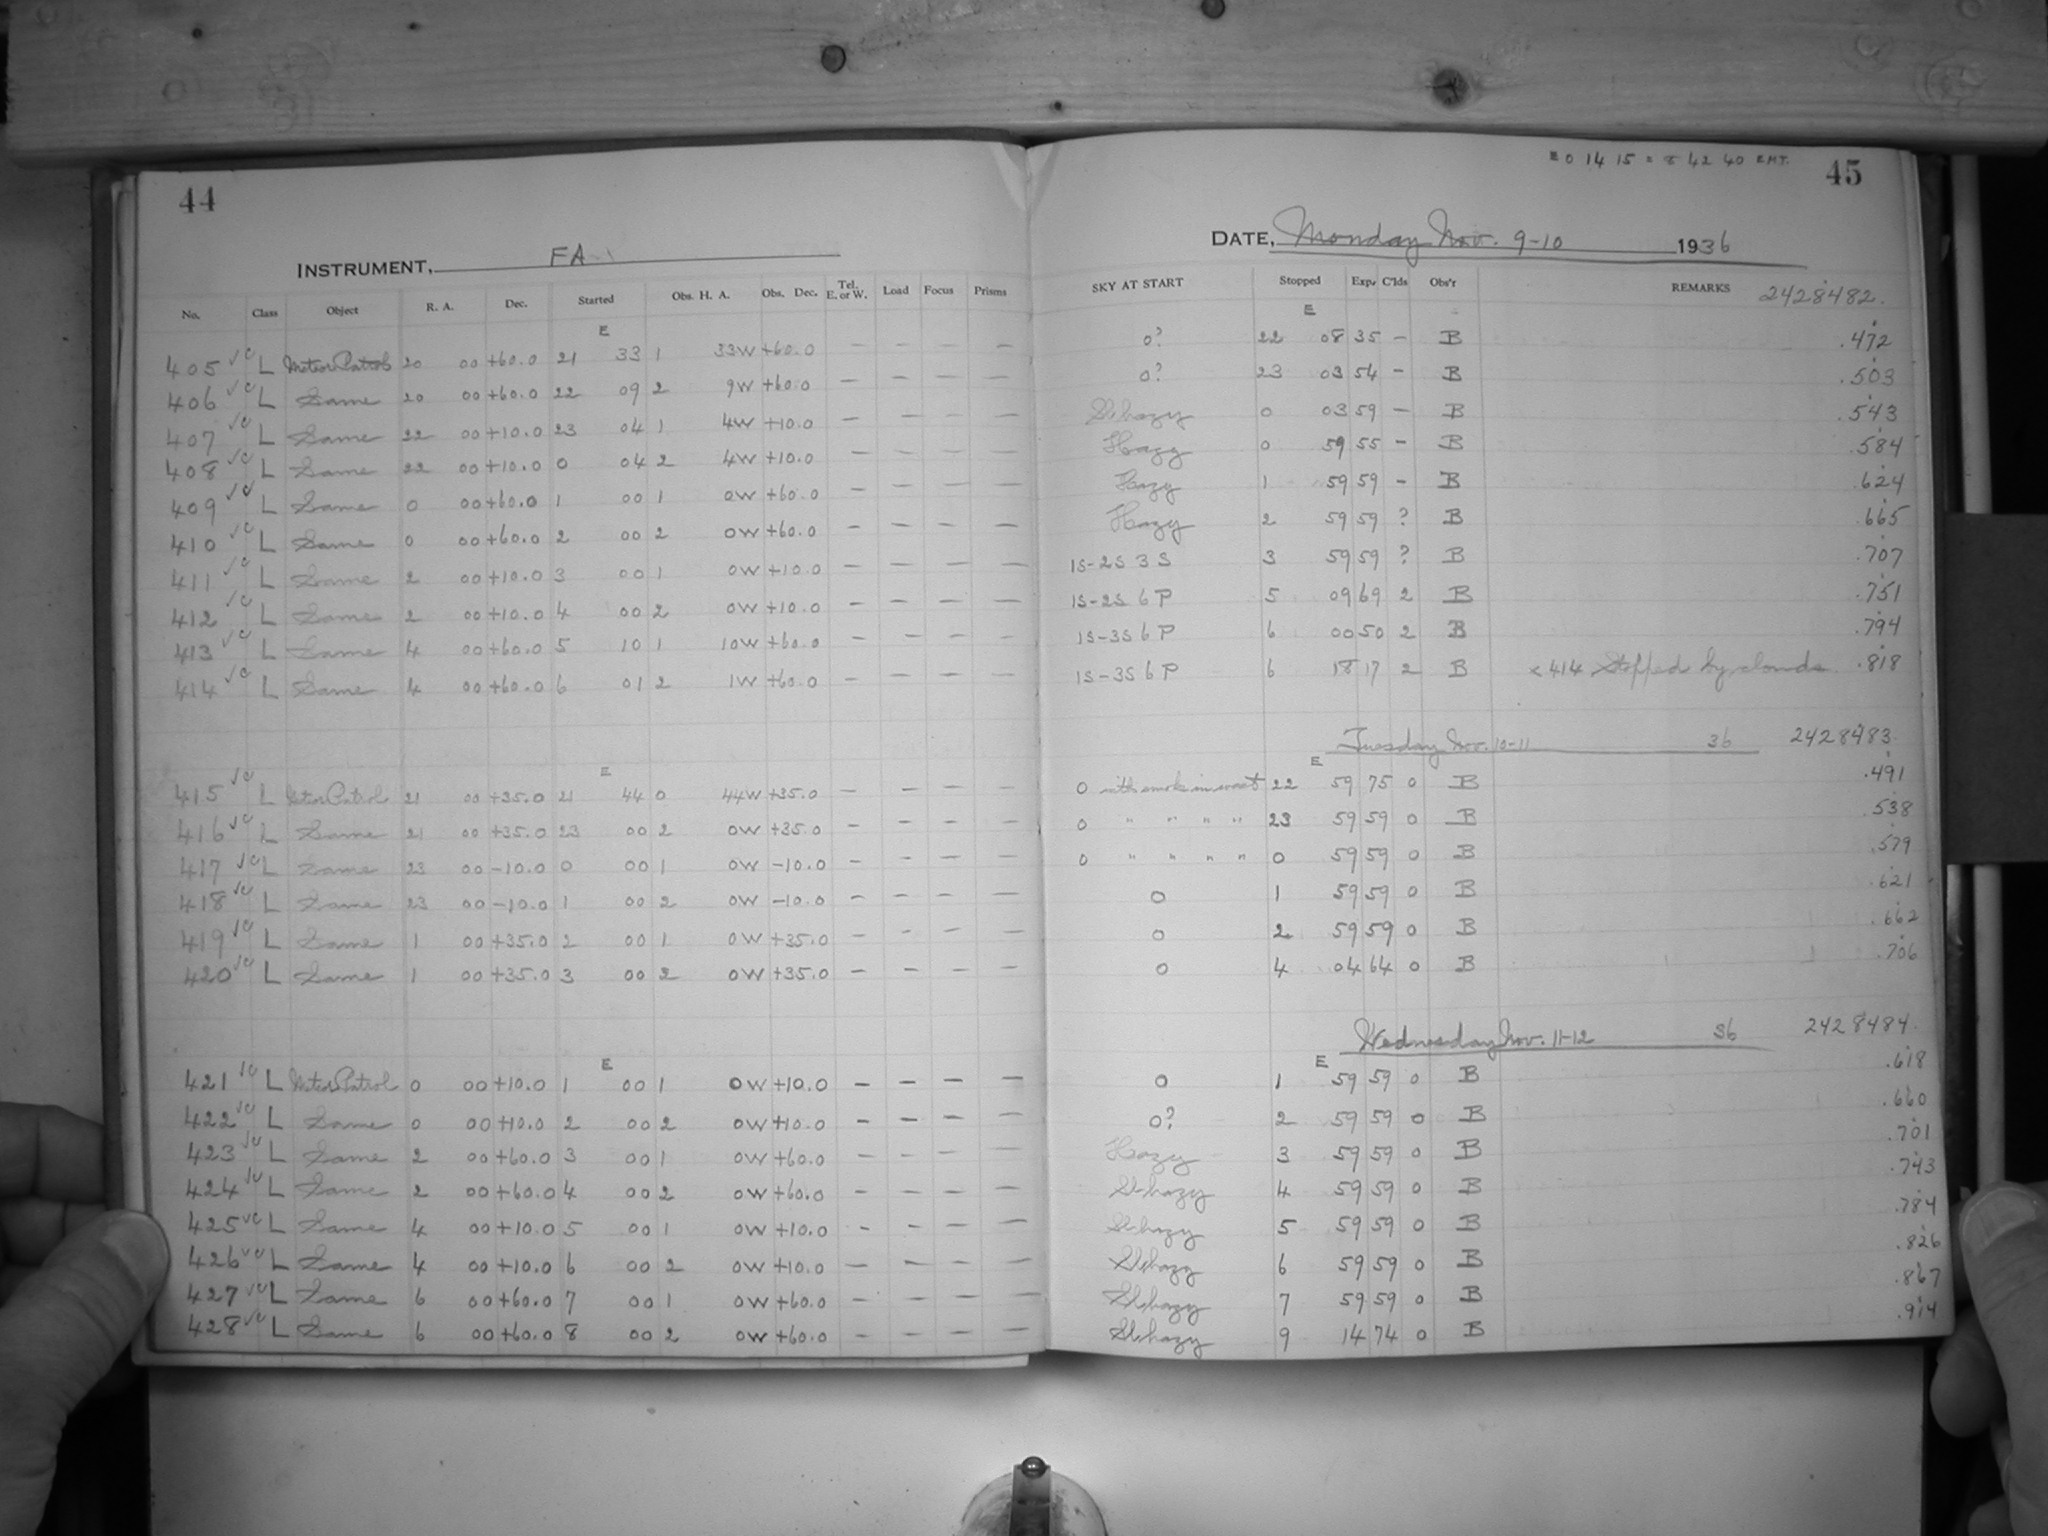 44
INSTRUMENT, FA
No. Class Object R. A. Dec. Started Obs. H. A. Obs. Dec. Tel. E. or W. Load Focus Prisms
E
405 L Meteor Patrol 20 00 +60.0 21 33 1 33W +60.0 — — — —
406 L Same 20 00 +60.0 22 09 2 9W +60.0 — — — —
407 L Same 22 00 +10.0 23 04 1 4W +10.0 — — — —
408 L Same 22 00 +10.0 0 04 2 4W +10.0 — — — —
409 L Same 0 00 +60.0 1 00 1 0W +60.0 — — — —
410 L Same 0 00 +60.0 2 00 2 0W +60.0 — — — —
411 L Same 2 00 +10.0 3 00 1 0W +10.0 — — — —
412 L Same 2 00 +10.0 4 00 2 0W +10.0 — — — —
413 L Same 4 00 +60.0 5 10 1 10W +60.0 — — — —
414 L Same 4 00 +60.0 6 01 2 1W +60.0 — — — —
E
415 L Meteor Patrol 21 00 +35.0 21 44 0 44W +35.0 — — — —
416 L Same 21 00 +35.0 23 00 2 0W +35.0 — — — —
417 L Same 23 00 -10.0 0 00 1 0W -10.0 — — — —
418 L Same 23 00 -10.0 1 00 2 0W -10.0 — — — —
419 L Same 1 00 +35.0 2 00 1 0W +35.0 — — — —
420 L Same 1 00 +35.0 3 00 2 0W +35.0 — — — —
E
421 L Meteor Patrol 0 00 +10.0 1 00 1 0W +10.0 — — — —
422 L Same 0 00 +10.0 2 00 2 0W +10.0 — — — —
423 L Same 2 00 +60.0 3 00 1 0W +60.0 — — — —
424 L Same 2 00 +60.0 4 00 2 0W +60.0 — — — —
425 L Same 4 00 +10.0 5 00 1 0W +10.0 — — — —
426 L Same 4 00 +10.0 6 00 2 0W +10.0 — — — —
427 L Same 6 00 +60.0 7 00 1 0W +60.0 — — — —
428 L Same 6 00 +60.0 8 00 2 0W +60.0 — — — —
E 0 14 15 = 8 42 40 GMT.
45
DATE, Monday Nov. 9-10 1936
SKY AT START Stopped Exp. C'lds Obs'r REMARKS 2428482.
E
0? 22 08 35 — B .472
0? 23 03 54 — B .503
Sl. hazy 0 03 59 — B .543
Hazy 0 59 55 — B .584
Hazy 1 59 59 — B .624
Hazy 2 59 59 ? B .665
1S-2S 3 S 3 59 59 ? B .707
1S-2S 6 P 5 09 69 2 B .751
1S-3S 6 P 6 00 50 2 B .794
1S-3S 6 P 6 18 17 2 B <414 Stopped by clouds .818
Tuesday Nov. 10-11 36 2428483.
E
0 with smoke in west 22 59 75 0 B .491
0 " " " " 23 59 59 0 B .538
0 " " " " 0 59 59 0 B .579
0 1 59 59 0 B .621
0 2 59 59 0 B .662
0 4 04 64 0 B .706
Wednesday Nov. 11-12 36 2428484.
E
0 1 59 59 0 B .618
0? 2 59 59 0 B .660
Hazy 3 59 59 0 B .701
Sl. hazy 4 59 59 0 B .743
Sl. hazy 5 59 59 0 B .784
Sl. hazy 6 59 59 0 B .826
Sl. hazy 7 59 59 0 B .867
Sl. hazy 9 14 74 0 B .914